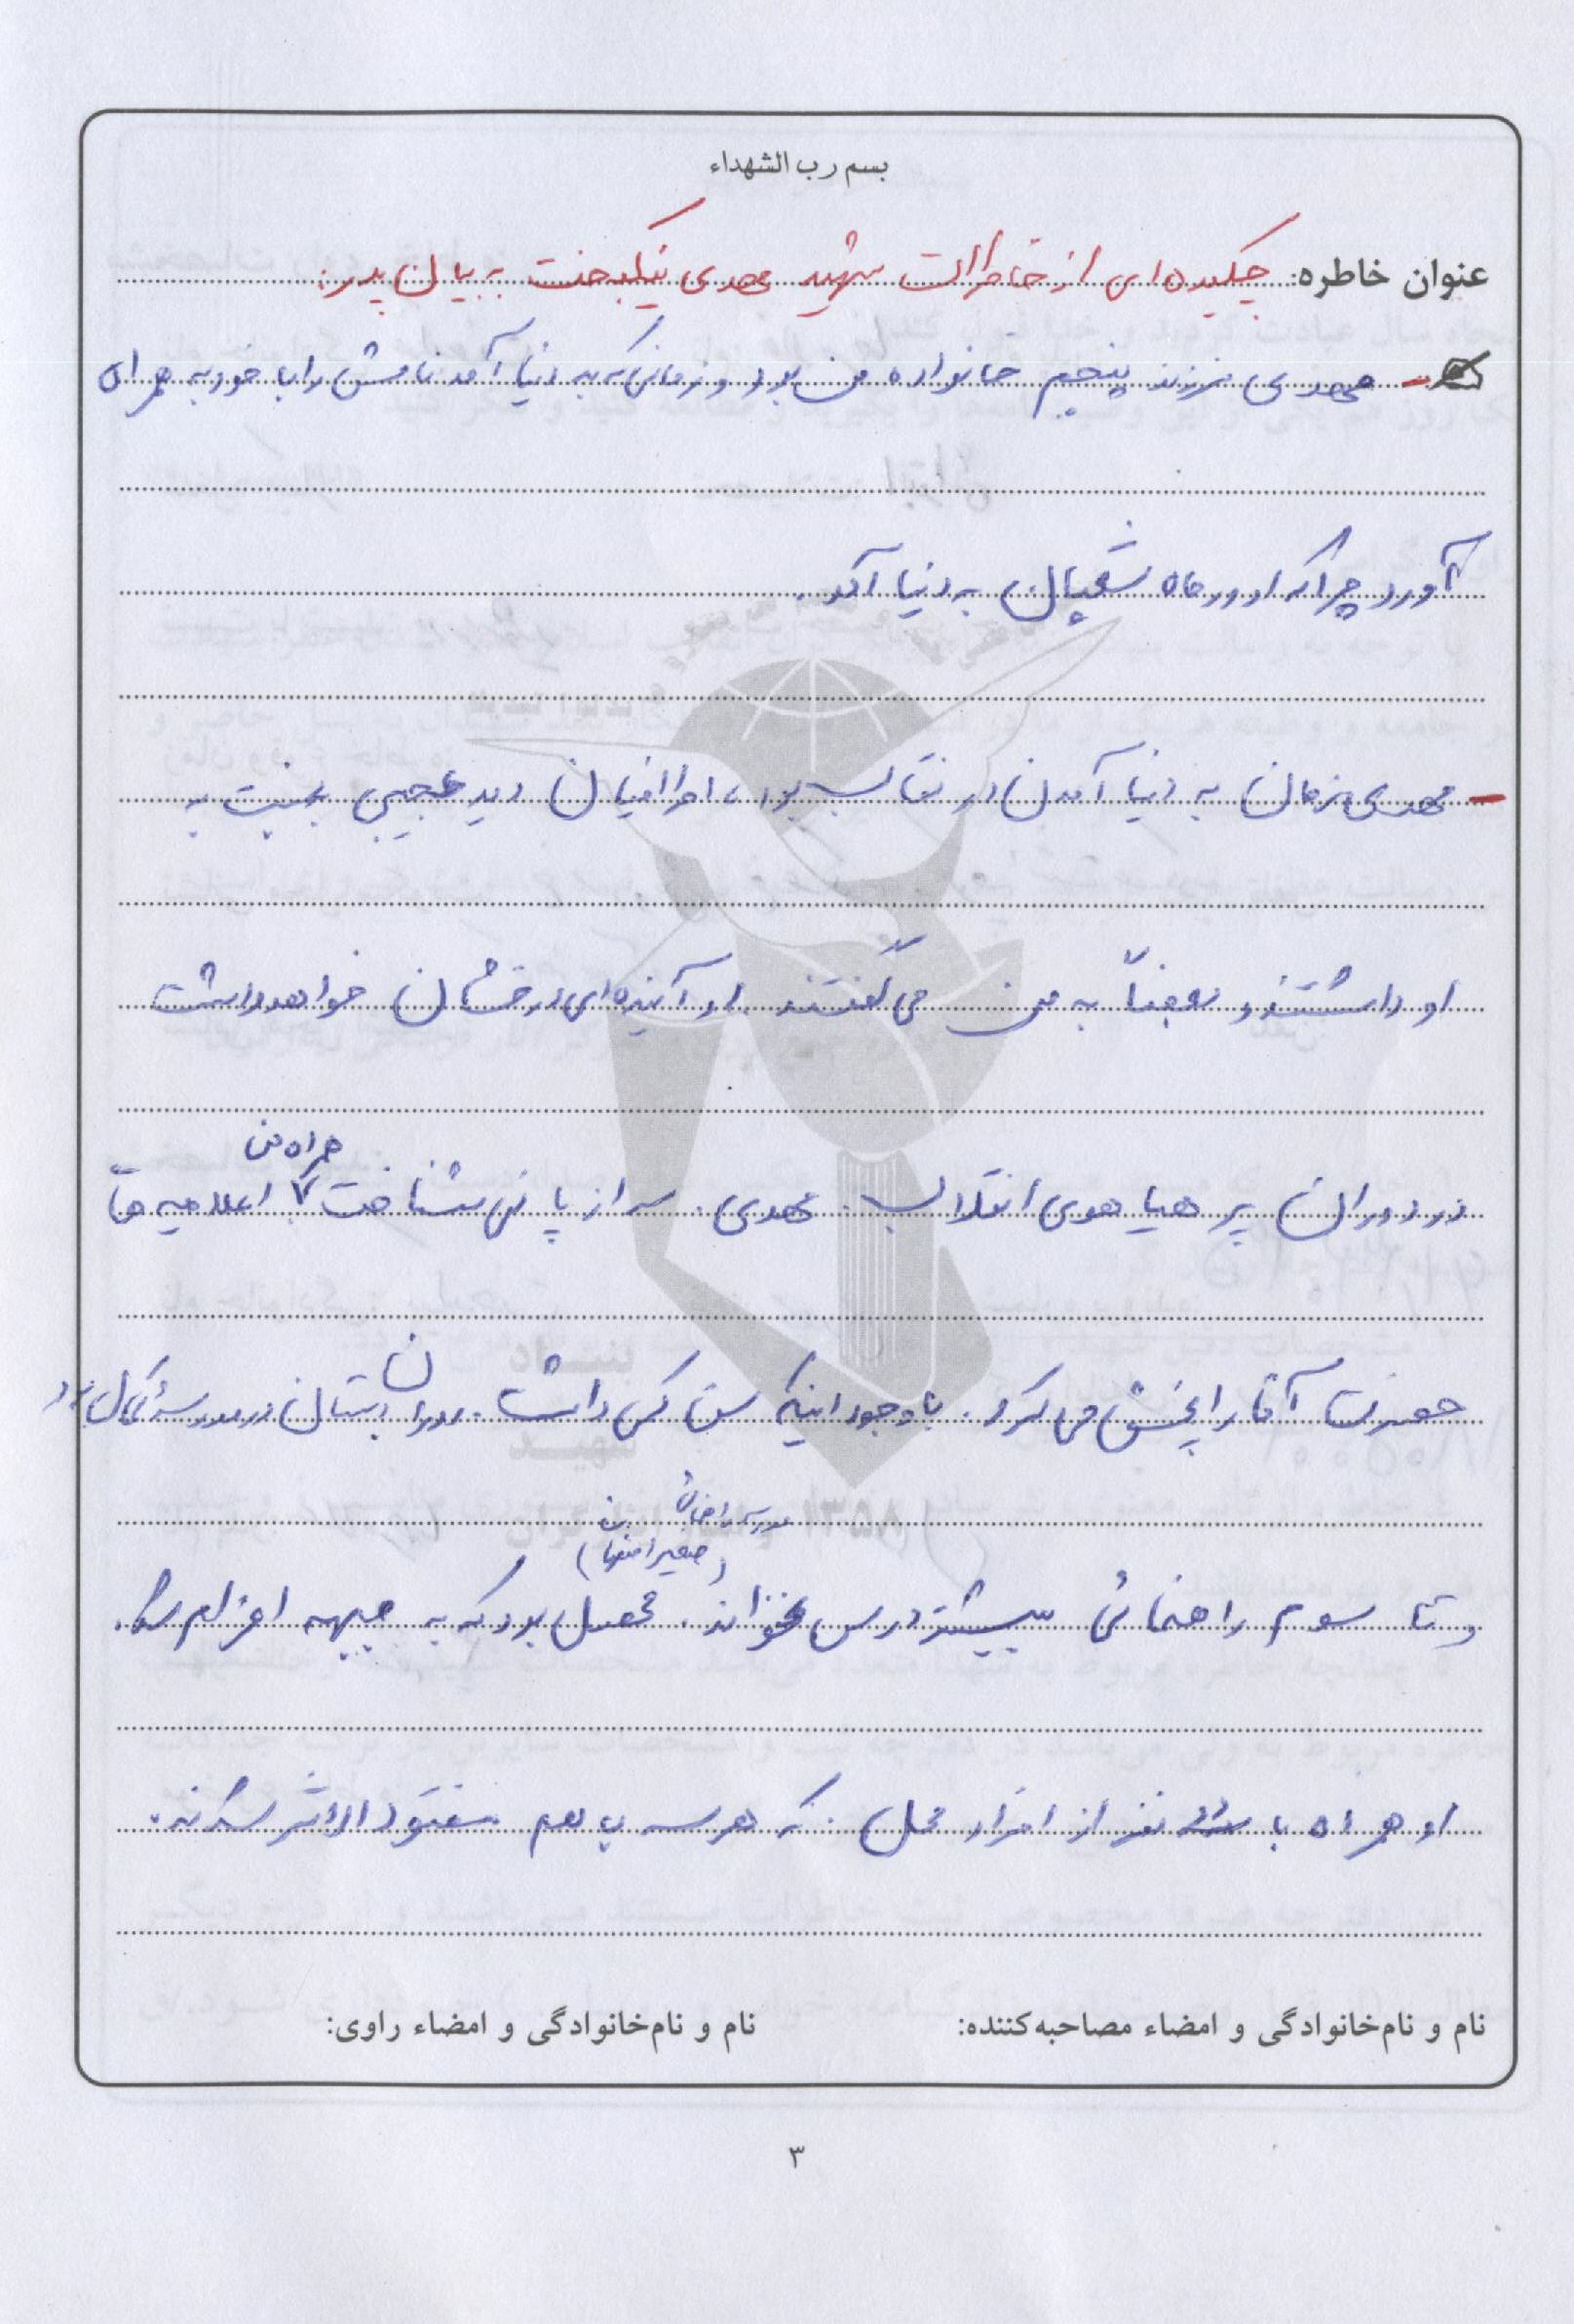 بسم رب الشهداء
عنوان خاطره: چکیده‌ای از خاطرات شهید مهدی نیکبخت به بیان پدر:
- مهدی فرزند پنجم خانواده من بود و زمانی که به دنیا آمد نامش را با خود به همراه
آورد چرا که او در ماه شعبان به دنیا آمد.
- مهدی زمان به دنیا آمدن در نقاب بود، اطرافیان دید عجیبی نسبت به
او داشتند و بعضاً به من می گفتند او آینده‌ای درخشان خواهد داشت
همراه من
در دوران پر هیاهوی انقلاب. مهدی. سر از پا نمی شناخت اعلامیه های
حضرت آقا را پخش می کرد. با وجود اینکه سن کمی داشت. دوران دبستان در مدرسه کمال بود
مدرسه راهنمائی
(صغیر اصفهانی)
و تا سوم راهنمائی بیشتر درس نخواند. محصل بود که به جبهه اعزام شد.
او همراه با نفر از افراد محل. که هر سه با هم مفقود الاثر شدند.
نام و نام‌خانوادگی و امضاء مصاحبه‌کننده:
نام و نام‌خانوادگی و امضاء راوی:
۳
بنیاد
شهید